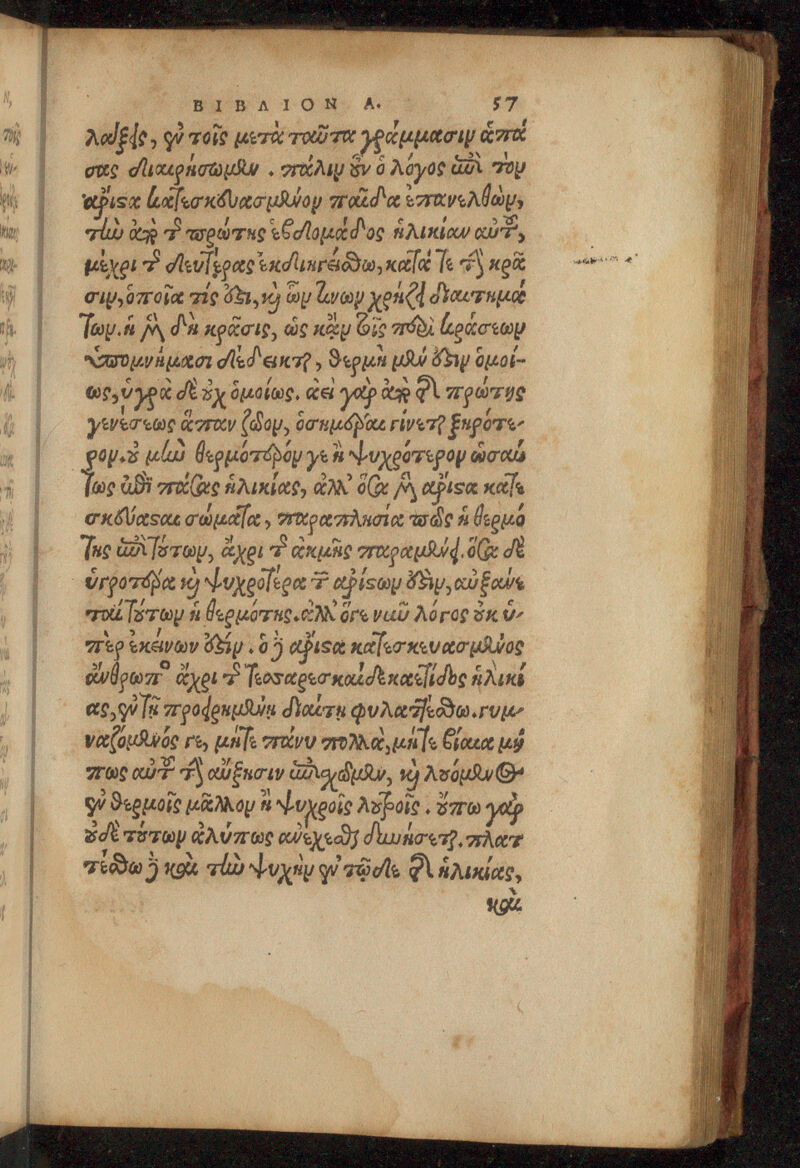 ΒΙΒΛΙΟΝ Α. 57
λαύξῃς, ἐν τοῖς μετὰ ταῦτα γράμμασιν ἁπά
σας διαιρήσωμεν. πάλιν οὖν ὁ λόγος ἐπὶ τὸν
ἄριστα κατεσκευασμένον παῖδα ἐπανελθὼν,
τὴν ἀπὸ τῆς πρώτης ἑβδομάδος ἡλικίαν αὐτοῦ,
μέχρι τῆς δευτέρας ἐκδιηγείσθω, κατά τε τὴν κρᾶ
σιν, ὁποῖα τίς ὅτι, καὶ ὧν τινων χρῄζει διαιτημά
των. ἡ μὲν δὴ κρᾶσις, ὡς κἀν τοῖς περὶ κράσεων
ὑπομνήμασι δέδεικται, θερμὴ μὲν ἐστιν ὁμοί-
ως, ὑγρὰ δὲ οὐχ ὁμοίως. ἀεὶ γὰρ ἀπὸ τῆς πρώτης
γενέσεως ἅπαν ζῶον, ὁσημέραι γίνεται ξηρότε-
ρον. οὐ μὴν θερμότερόν γε ἢ ψυχρότερον ὡσαύ
τως ἐπὶ πάσας ἡλικίας, ἀλλ' ὅσα μὲν ἄριστα κατε
σκεύασται σώματα, παραπλησία πως ἡ θερμό
της ἐπὶ τούτων, ἄχρι τῆς ἀκμῆς παραμένει. ὅσα δὲ
ὑγρότερα καὶ ψυχρότερα τῶν ἀρίστων ἐστιν, αὐξάνε
ται τούτων ἡ θερμότης. ἀλλ' ὅγε νῦν λόγος οὐκ ὑ-
πὲρ ἐκείνων ἐστίν. ὁ δὲ ἄριστα κατεσκευασμένος
ἄνθρωπος ἄχρι τῆς τεσσαρεσκαιδεκαετίδος ἡλικί
ας, ἐν τῇ προειρημένῃ διαίτῃ φυλαττέσθω. γυμ-
ναζόμενός γε, μήτε πάνυ πολλὰ, μήτε βίαια μή
πως αὐτοῦ τὴν αὔξησιν ἐπίσχωμεν, καὶ λουόμενος
ἐν θερμοῖς μᾶλλον ἢ ψυχροῖς λουτροῖς. οὔπω γὰρ
οὐδὲ τούτων ἀλύπως ἀνέχεσθαι δυνήσεται. πλατ
τέσθω δὲ καὶ τὴν ψυχὴν ἐν τῷδε τῆς ἡλικίας,
καὶ